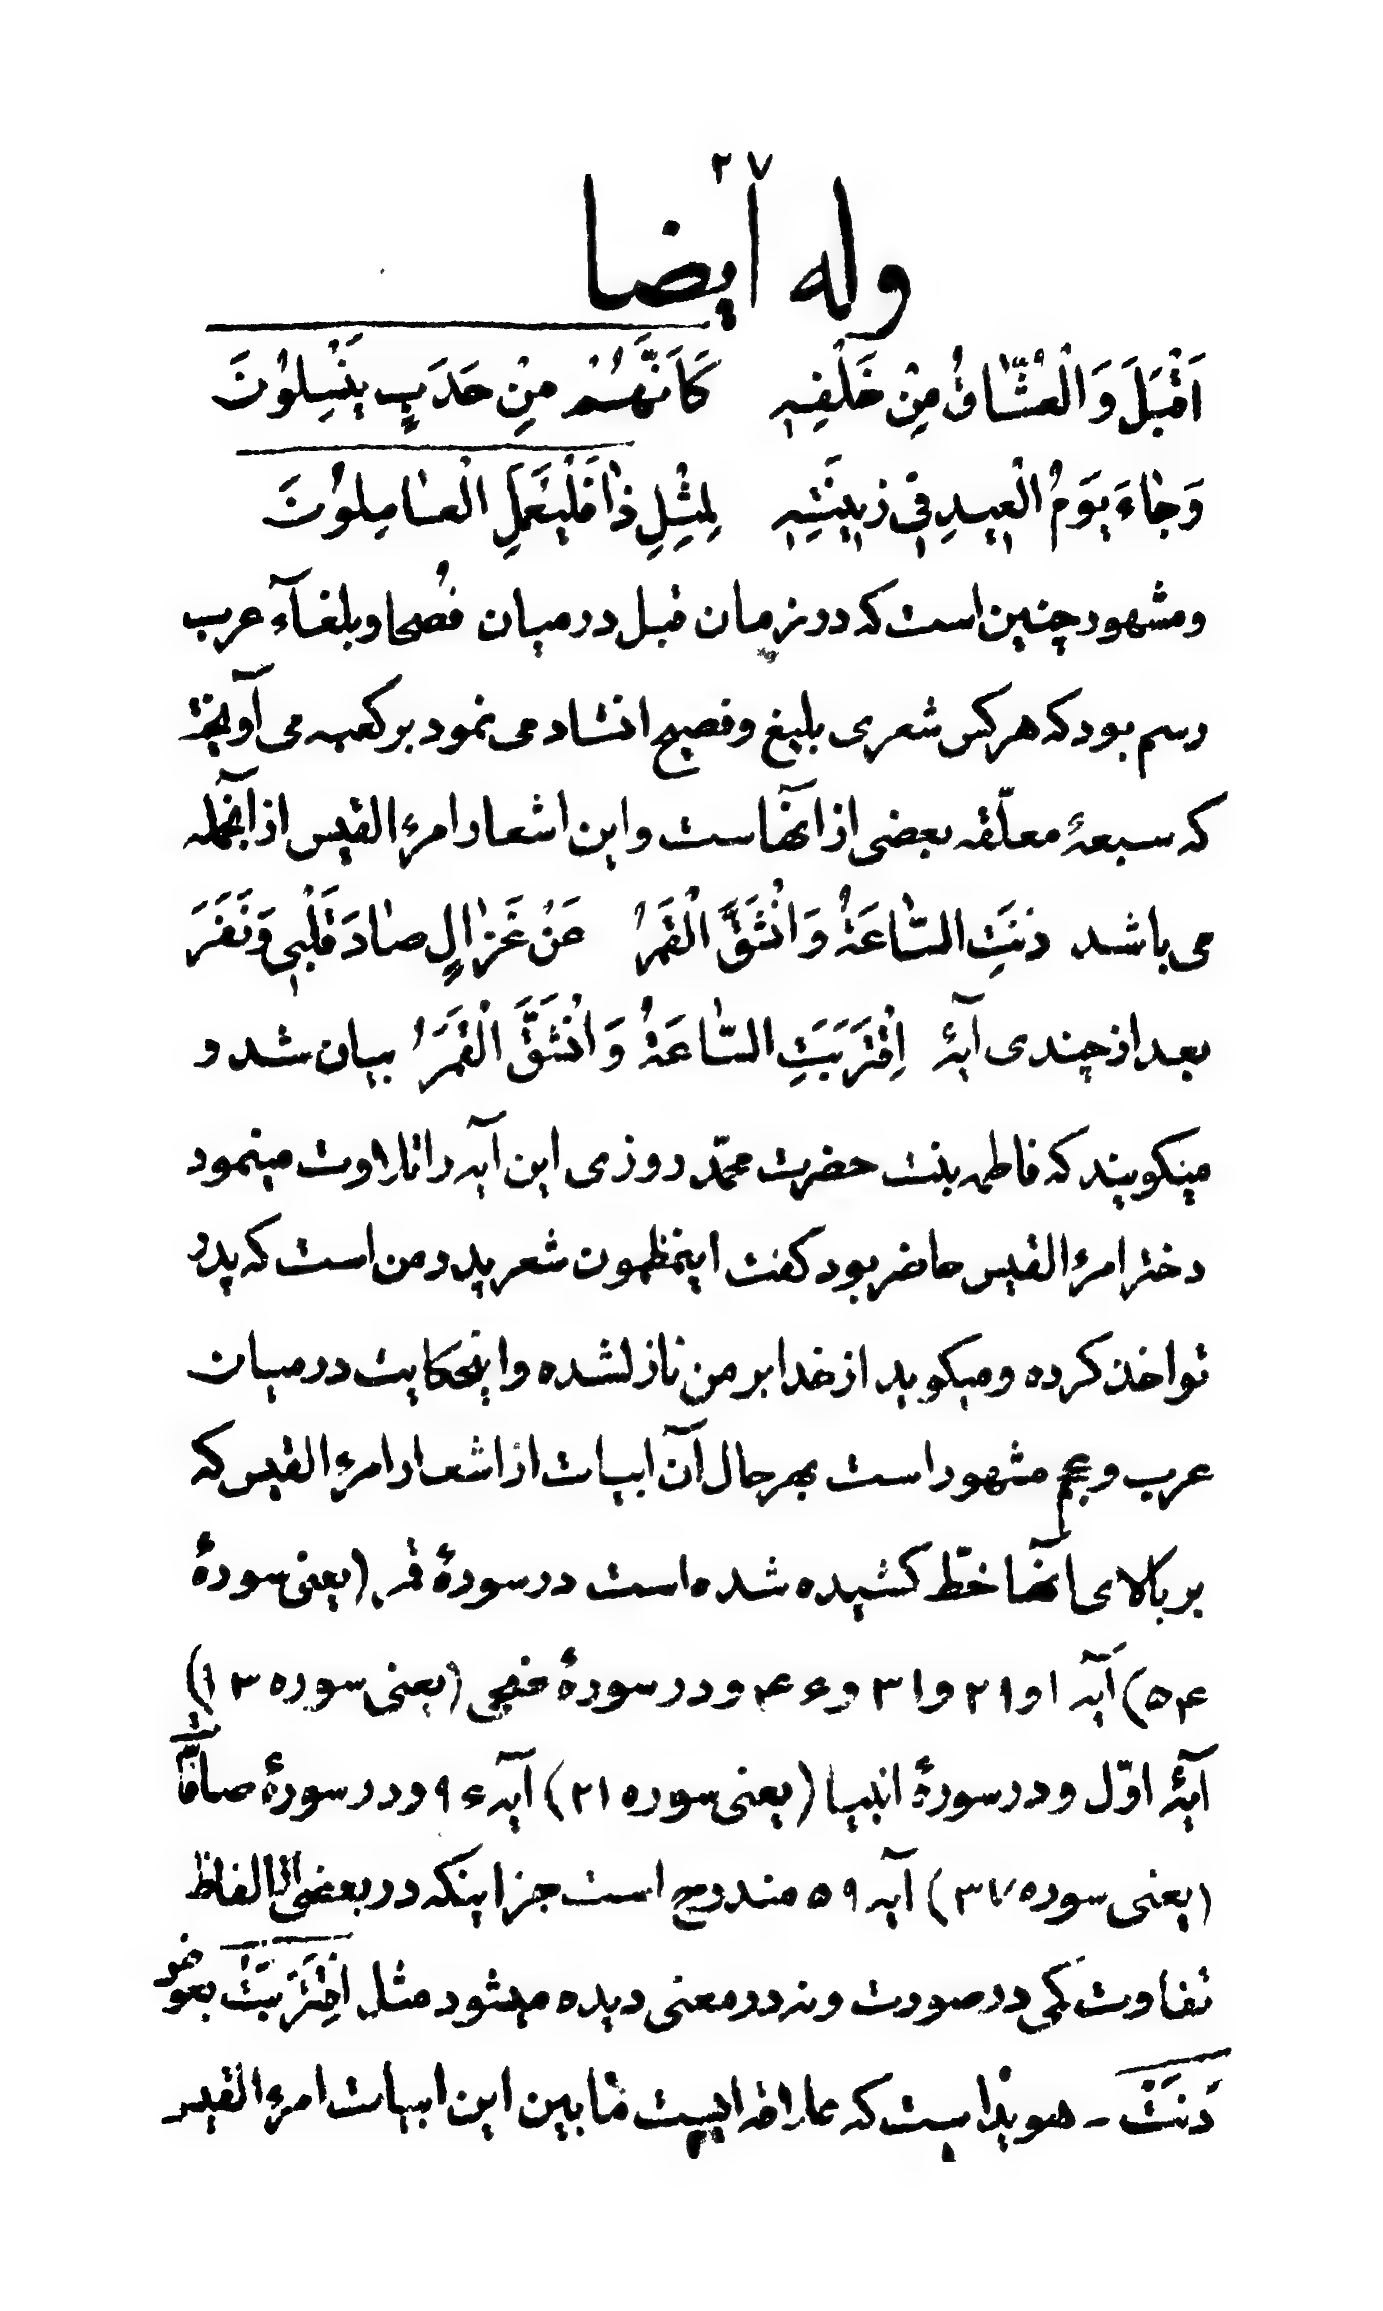 ۲۷
وله ایضا
اَقْبَلَ وَ الْعُشّاقُ مِنْ خَلْفِهِ كَاَنَّهُمْ مِنْ حَدَبٍ يَنْسِلُونَ
وَجاءَ يَوْمَ الْعِيدِ فِي زِينَتِهِ لِمِثْلِ ذا فَلْيَعْمَلِ الْعامِلُونَ
و مشهود چنین است که در زمان قبل در میان فُصحا و بلغآء عرب
رسم بود که هر کس شعری بلیغ و فصیح انشاد می نمود بر کعبه می آویخت
که سبعهٔ معلّقه بعضی از آنهاست و این اشعار امرء القیس از آنجمله
می باشد دَنَتِ السّاعَةُ وَ انْشَقَّ الْقَمَرُ عَنْ غَزالٍ صادَ قَلْبِي وَ نَفَرَ
بعد از چندی آیهٔ اِقْتَرَبَتِ السّاعَةُ وَ انْشَقَّ الْقَمَرُ بیان شد و
میکویند که فاطمه بنت حضرت محمّد روزی این آیه را تلاوت مینمود
دختر امرء القیس حاضر بود کفت اینمظمون شعر پدر من است که پدر
تو اخذ کرده و میکوید از خدا بر من نازلشده و اینحکایت در میان
عرب و عجم مشهود است بهر حال آن ابیات از اشعار امرء القیس که
بر بالای آنها خطّ کشیده شده است در سورهٔ قمر (یعنی سورهٔ
۵۴) آیه ۱ و ۲۹ و ۳۱ و ۴۶ و در سورهٔ ضحی (یعنی سوره ۹۳)
آیهٔ اوّل و در سورهٔ انبیا (یعنی سوره ۲۱) آیه ۹۶ و در سورهٔ صافّات
(یعنی سوره ۳۷) آیه ۵۹ مندرج است جز اینکه در بعضی الفاظ
تفاوت کمی در صورت و نه در معنی دیده میشود مثل اِقْتَرَبَتْ بعوض
دَنَتْ - هویداست که علاقه ایست ما بین این ابیات امرء القیس